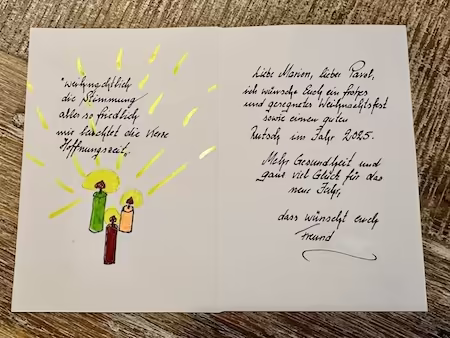 "weihnachtlich
die Stimmung
alles so friedlich
mir leuchtet die
Hoffnungszeit,"
Liebe Marion, lieber Pavol,
ich wünsche Euch ein frohes
und geregnetes Weihnachtsfest
sowie einen guten
Rutsch im Jahr 2025.
Mehr Gesundheit und
ganz viel Glück für das
neue Jahr,
dass wünscht euch
Freund